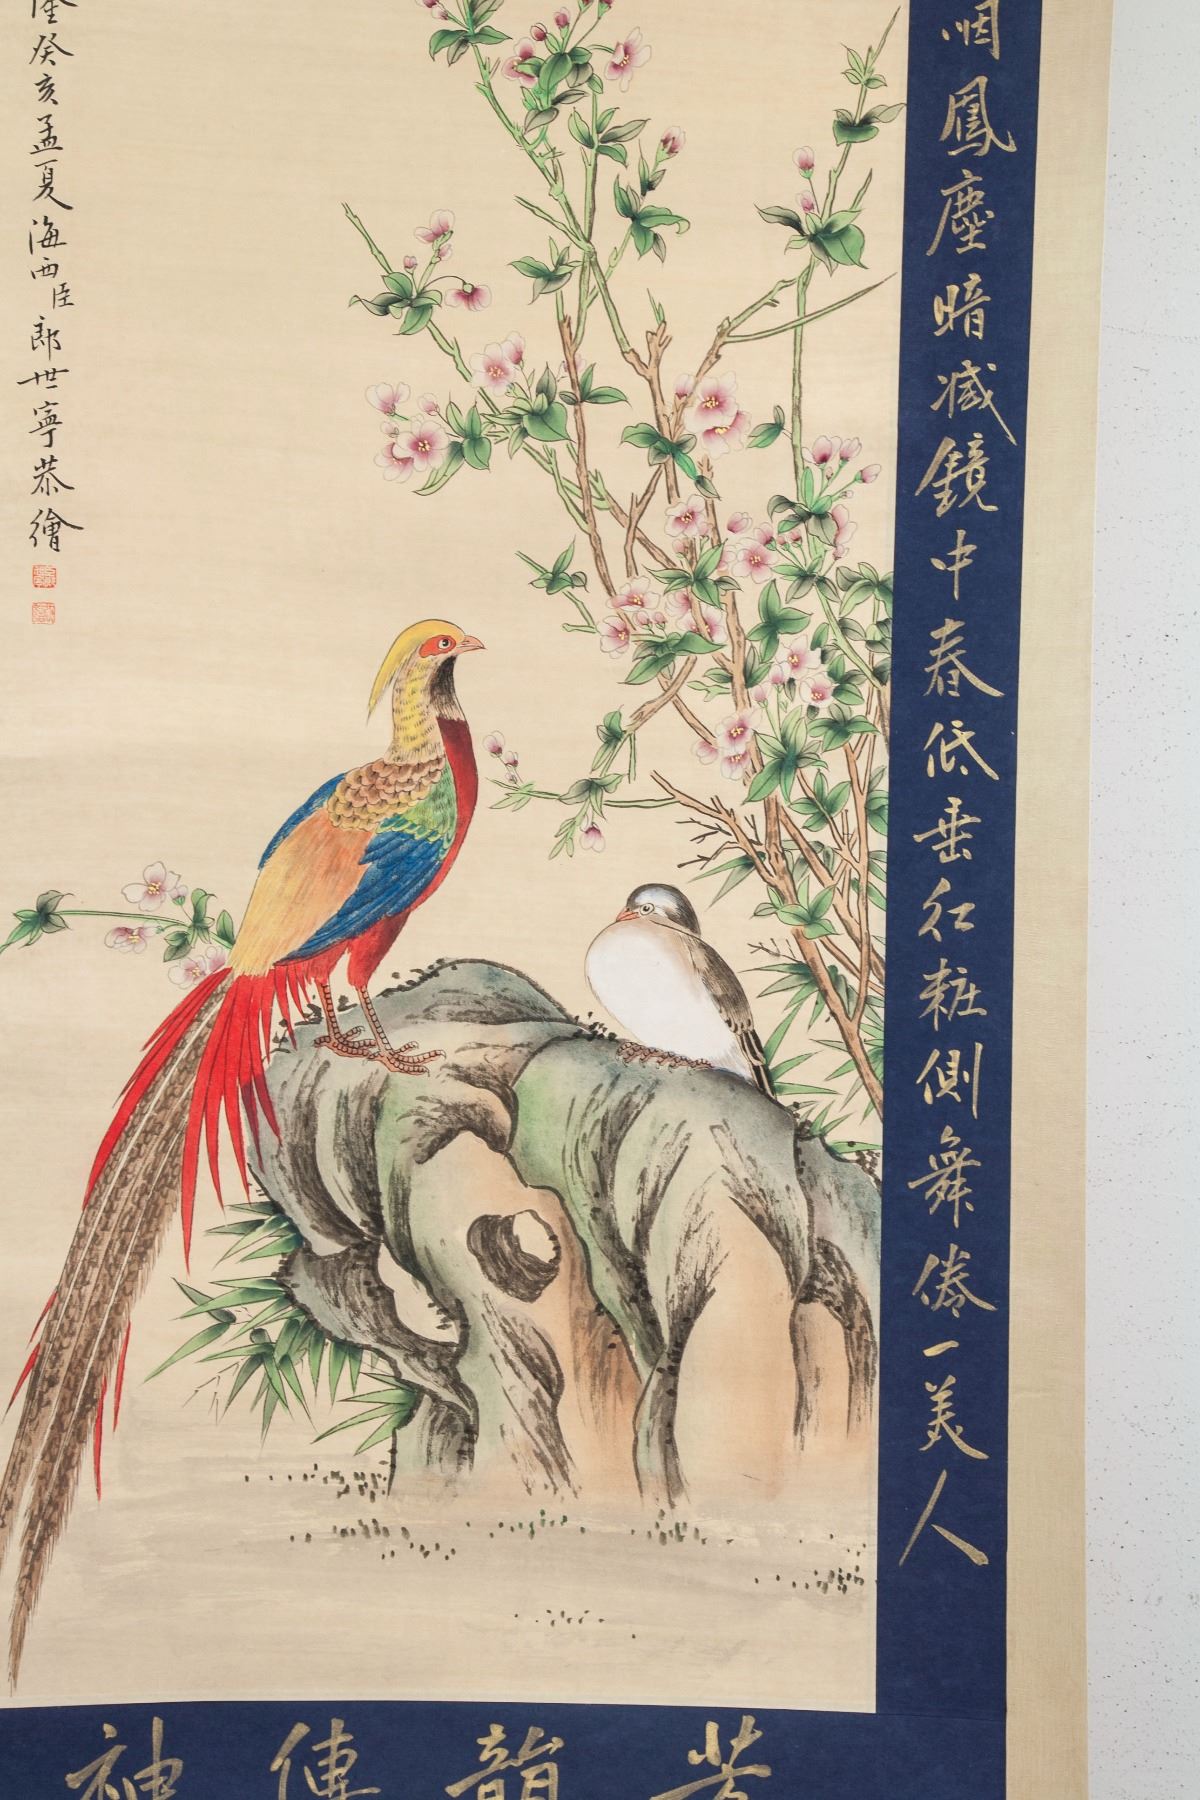 烟鳳塵暗减鏡中春低垂红粧側舞倦一美人
隆癸亥孟夏海西臣郎世寧恭繪
芳韻傳神